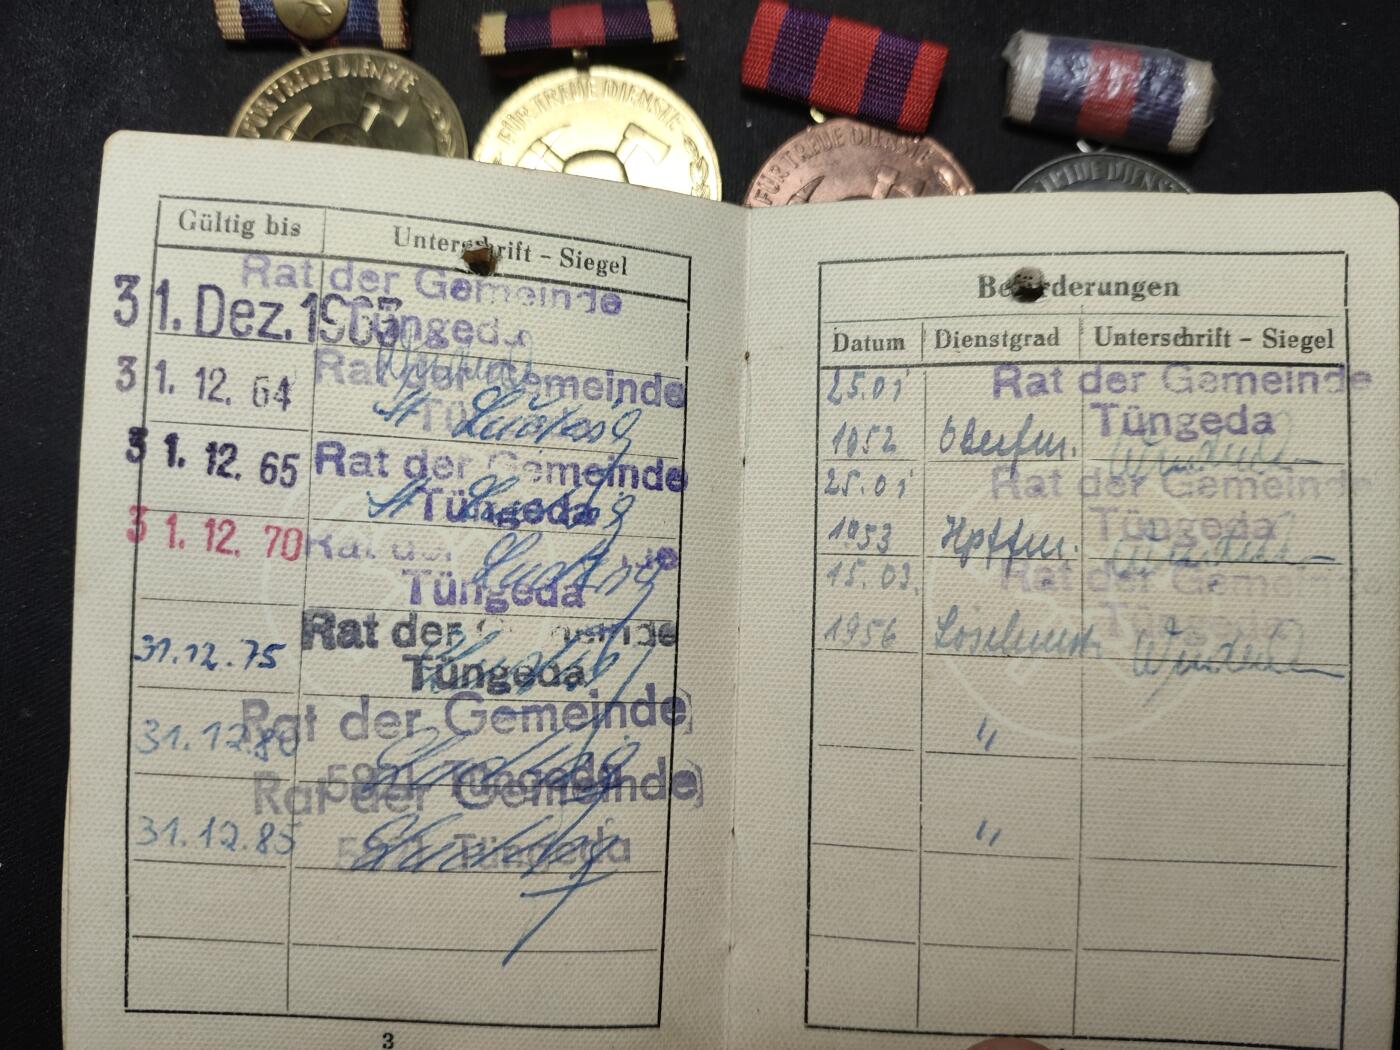 FÜR TREUE DIENSTE
FÜR TREUE DIENSTE
FÜR TREUE DIENSTE
TREUE DIENSTE
Gültig bis
Unterschrift - Siegel
31. Dez. 1963
Rat der Gemeinde
Tüngeda
31. 12. 64
Rat der Gemeinde
31. 12. 65
Rat der Gemeinde
Tüngeda
31. 12. 70
Rat der
Tüngeda
31.12.75
Rat der Gemeinde
Tüngeda
31.12.80
Rat der Gemeinde
5821 Tüngeda
31.12.85
Rat der Gemeinde
Tüngeda
3
Beförderungen
Datum
Dienstgrad
Unterschrift - Siegel
25.01
1952
Oberfm.
Rat der Gemeinde
Tüngeda
25.01
1953
Hptfm.
Rat der Gemeinde
Tüngeda
15.03.
1956
Löschmstr.
Rat der Gemeinde
Tüngeda
"
"